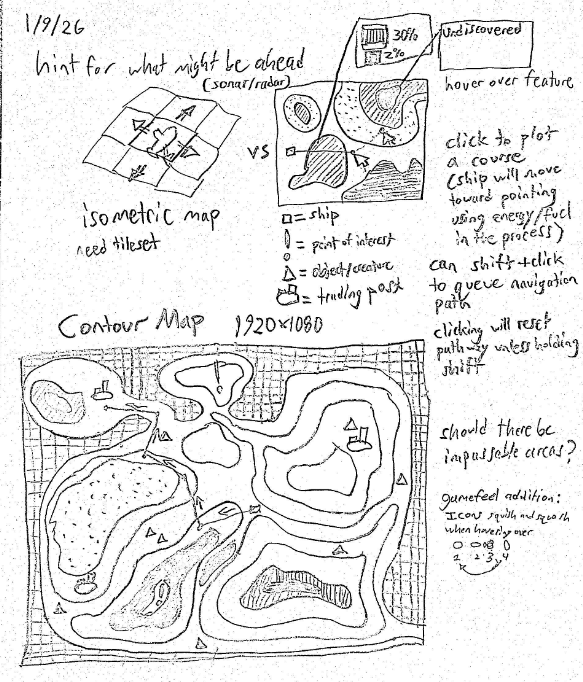 1/9/26
hint for what might be ahead
(sonar/radar)
30%
2%
Undiscovered
hover over feature
VS
isometric map
need tileset
= ship
= point of interest
= object/creature
= trading post
click to plot
a course
(ship will move
toward pointing
using energy/fuel
in the process)
can shift+click
to queue navigation
path
clicking will reset
pathway unless holding
shift
Contour Map 1920x1080
should there be
impassable areas?
gamefeel addition:
Icons squish and squash
when hovering over
1 2 3 4